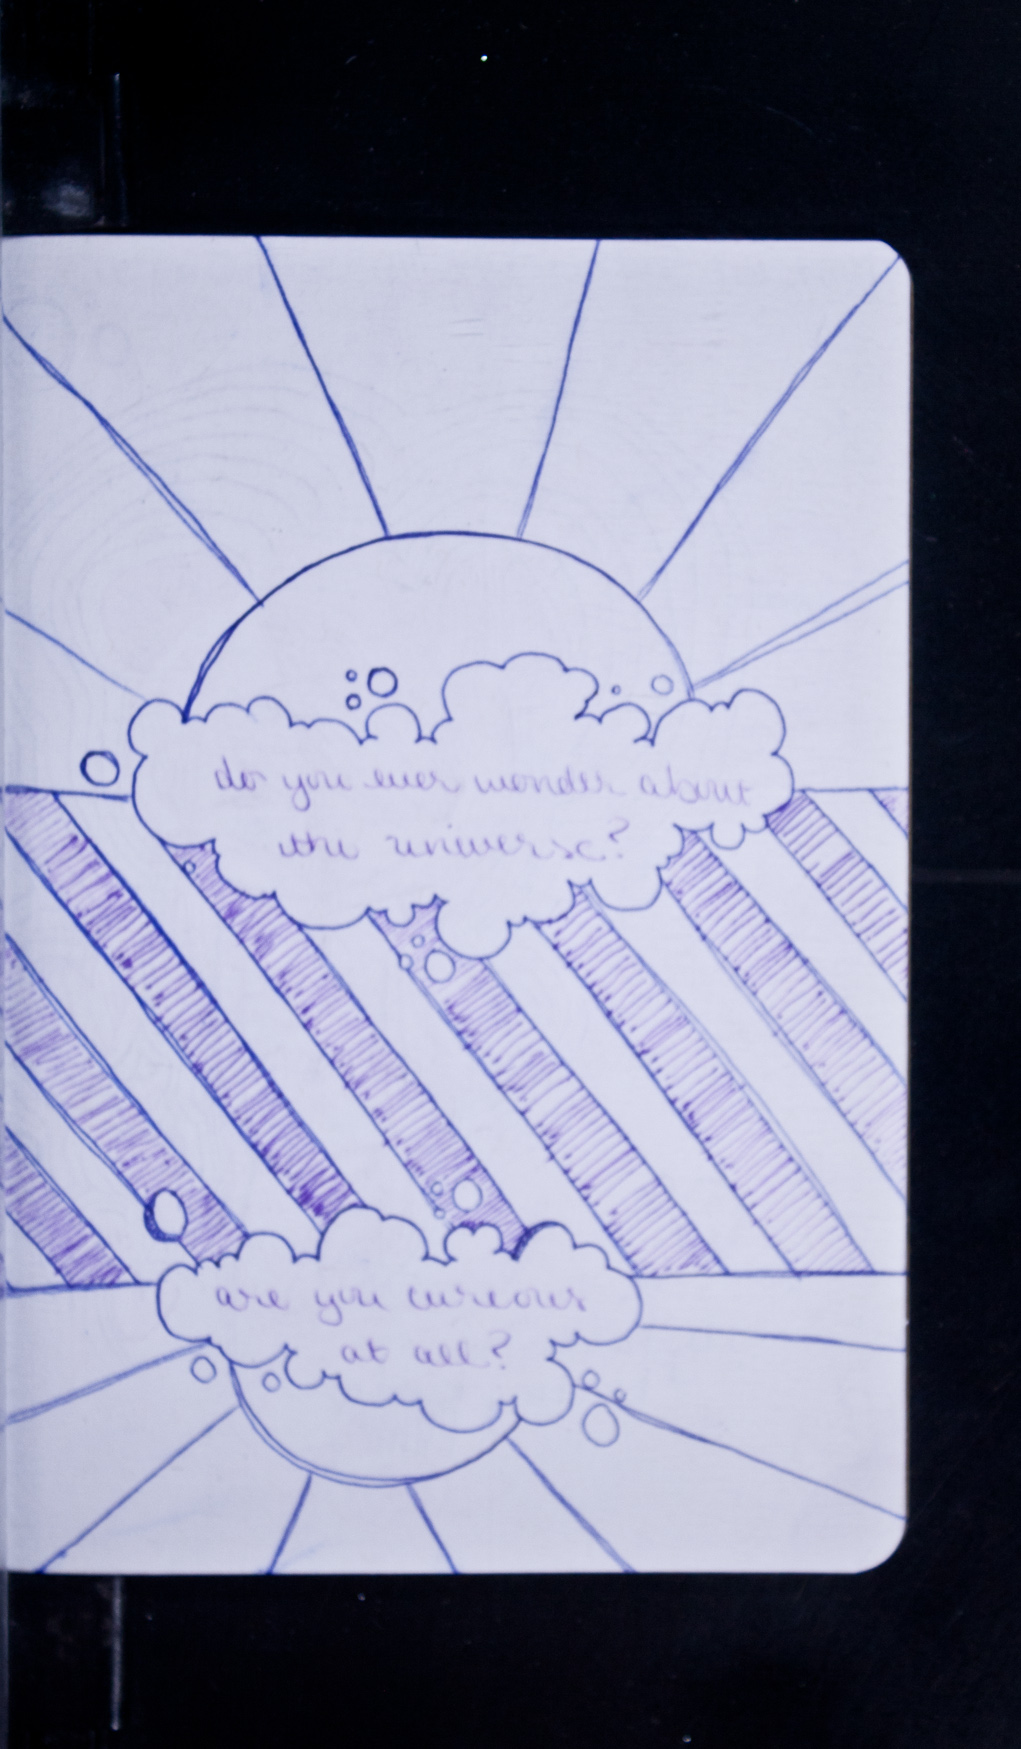 do you ever wonder about
the universe?
are you curious
at all?